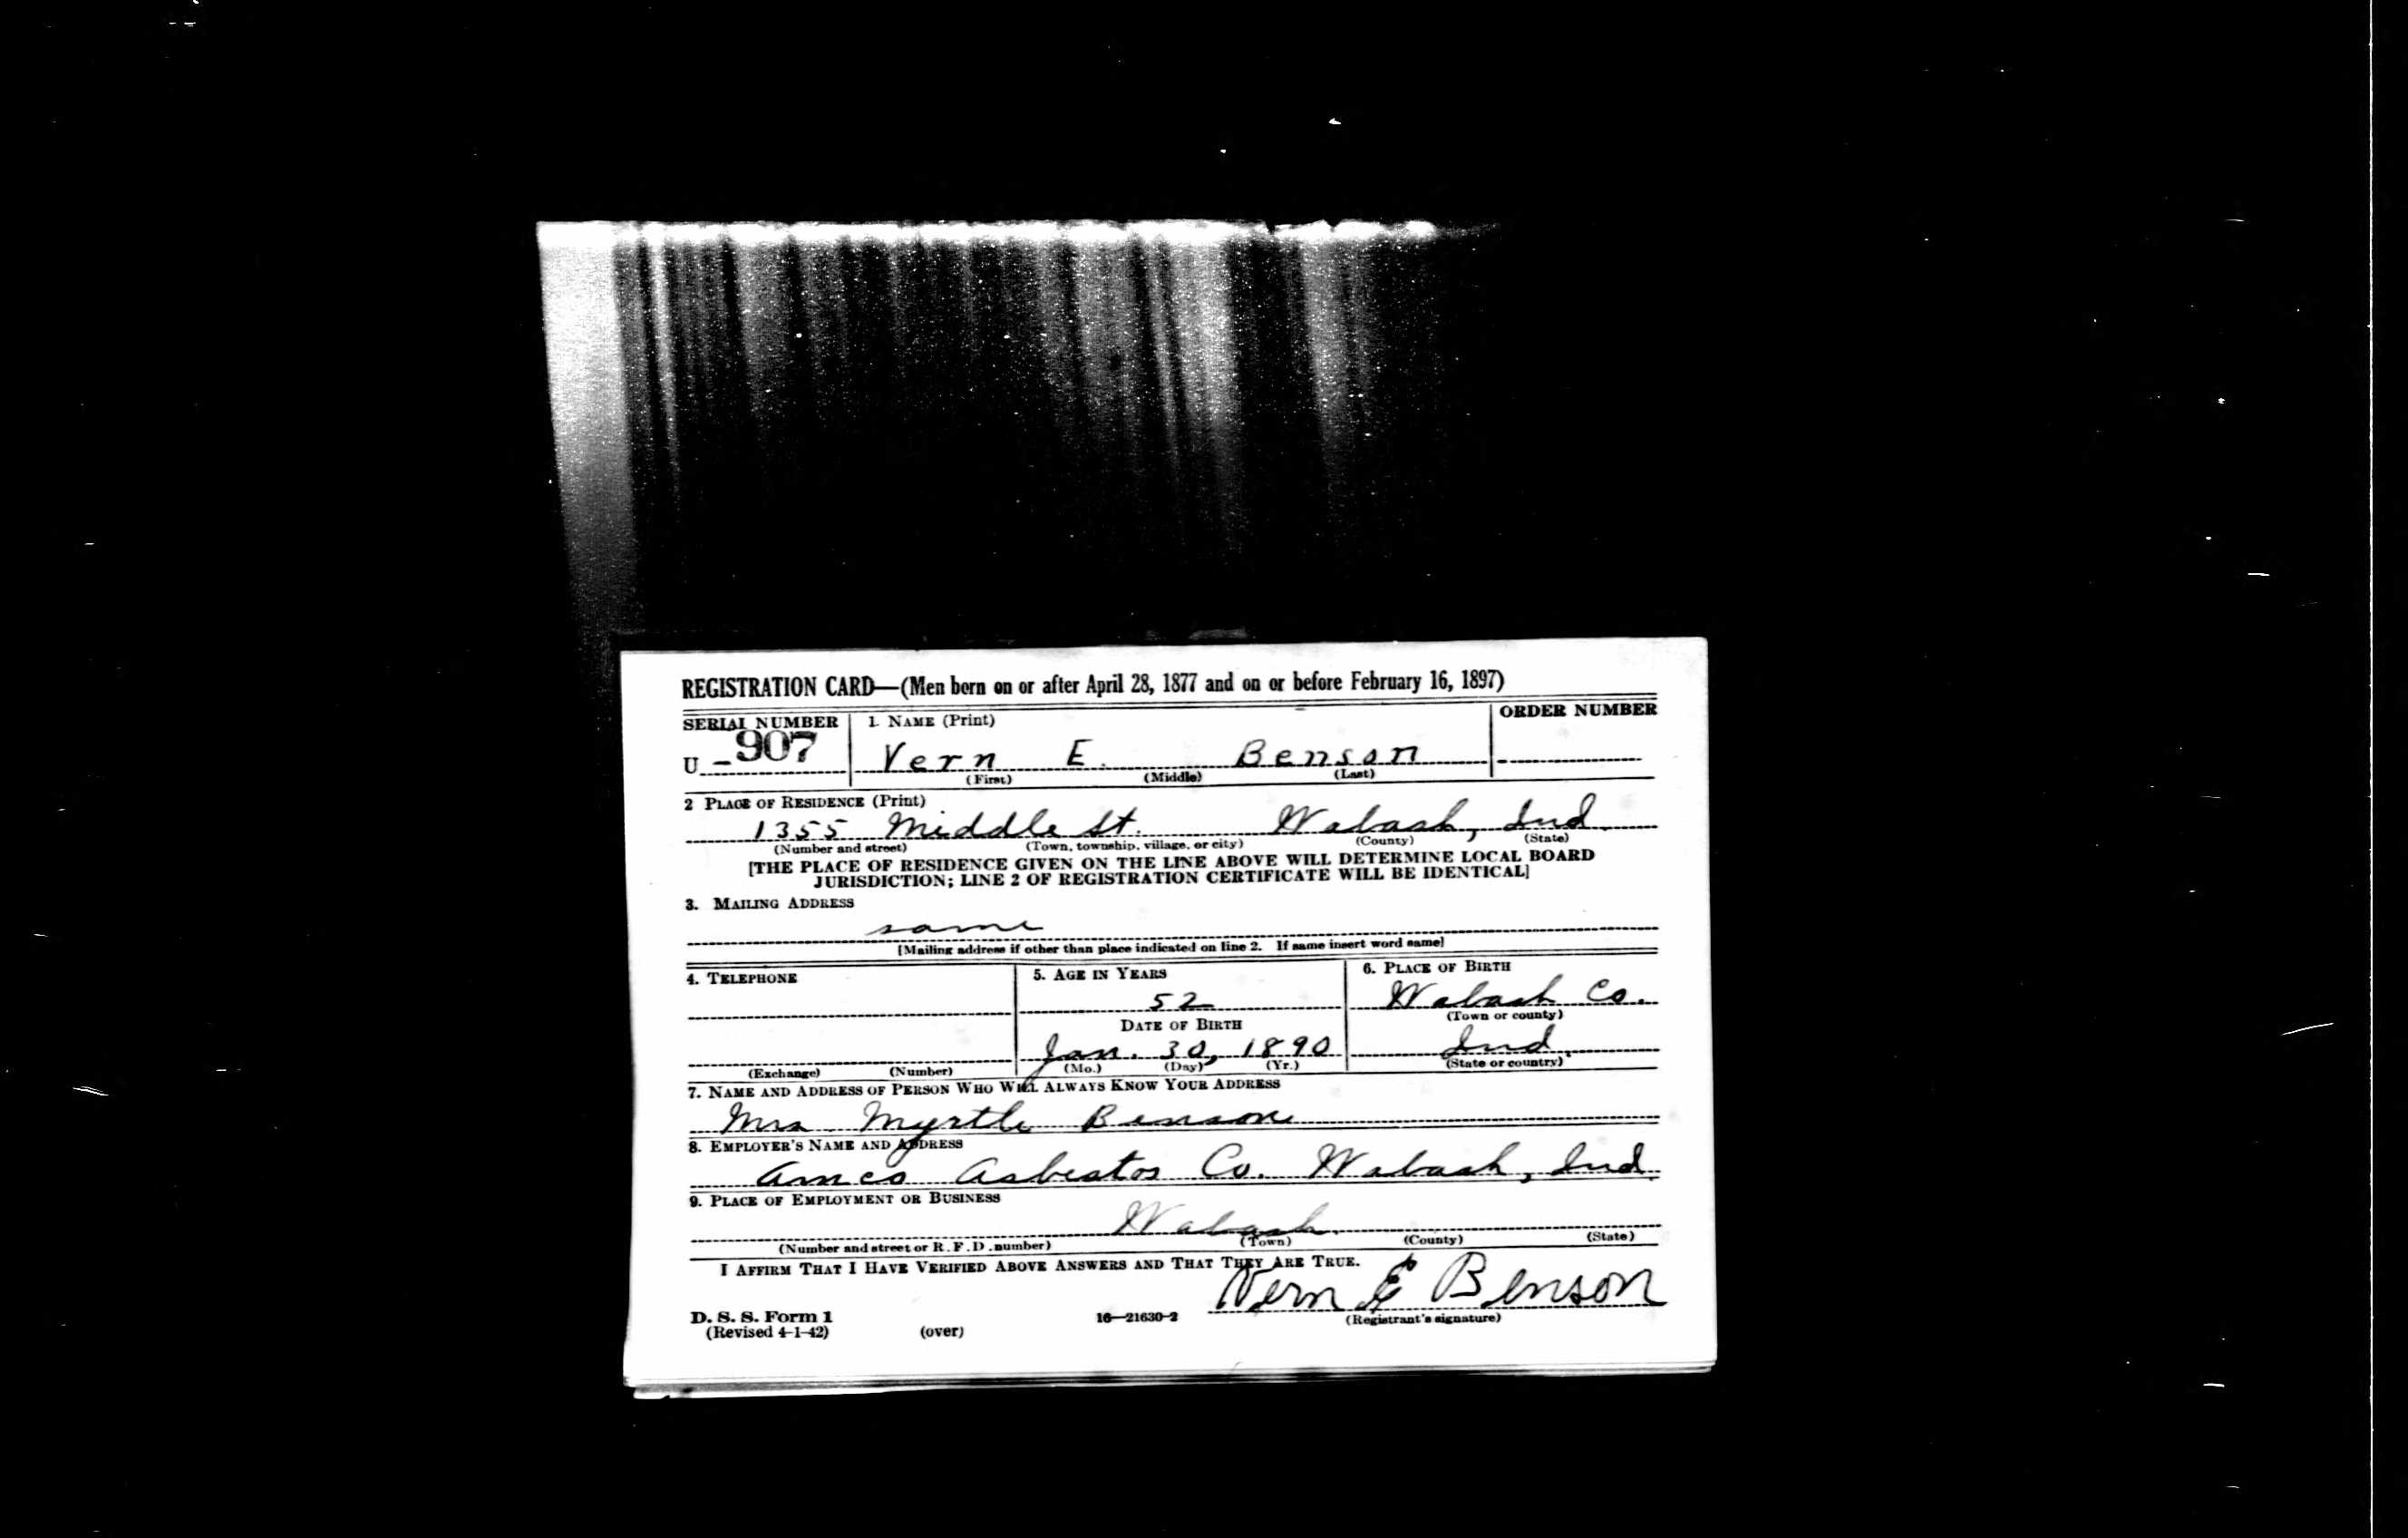 REGISTRATION CARD—(Men born on or after April 28, 1877 and on or before February 16, 1897)
SERIAL NUMBER 1. NAME (Print) ORDER NUMBER
U - 907 Vern E. Benson
(First) (Middle) (Last)
2 PLACE OF RESIDENCE (Print)
1355 Middle St. Wabash, Ind.
(Number and street) (Town, township, village, or city) (County) (State)
[THE PLACE OF RESIDENCE GIVEN ON THE LINE ABOVE WILL DETERMINE LOCAL BOARD
JURISDICTION; LINE 2 OF REGISTRATION CERTIFICATE WILL BE IDENTICAL]
3. MAILING ADDRESS
same
[Mailing address if other than place indicated on line 2. If same insert word same]
4. TELEPHONE 5. AGE IN YEARS 6. PLACE OF BIRTH
52 Wabash Co.
(Town or county)
DATE OF BIRTH
Jan. 30, 1890 Ind.
(Exchange) (Number) (Mo.) (Day) (Yr.) (State or country)
7. NAME AND ADDRESS OF PERSON WHO WILL ALWAYS KNOW YOUR ADDRESS
Mrs Myrtle Benson
8. EMPLOYER'S NAME AND ADDRESS
Amco Asbestos Co. Wabash, Ind.
9. PLACE OF EMPLOYMENT OR BUSINESS
Wabash
(Number and street or R. F. D. number) (Town) (County) (State)
I AFFIRM THAT I HAVE VERIFIED ABOVE ANSWERS AND THAT THEY ARE TRUE.
Vern E Benson
D. S. S. Form 1 16—21630-2 (Registrant's signature)
(Revised 4-1-42) (over)